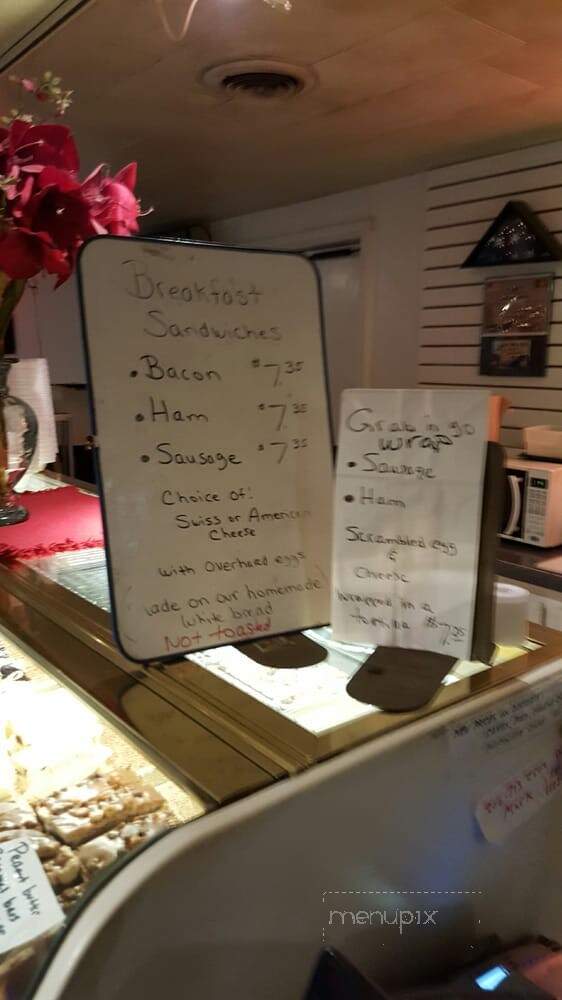 Breakfast
Sandwiches
• Bacon $7.35
• Ham $7.35
• Sausage $7.35
Choice of:
Swiss or American
Cheese
with overhead eggs
made on our homemade
white bread
Not toasted
Grab n go
wrap
• Sausage
• Ham
Scrambled egg
&
cheese
wrapped in a
tortilla
Peanut butter
bars
menupix